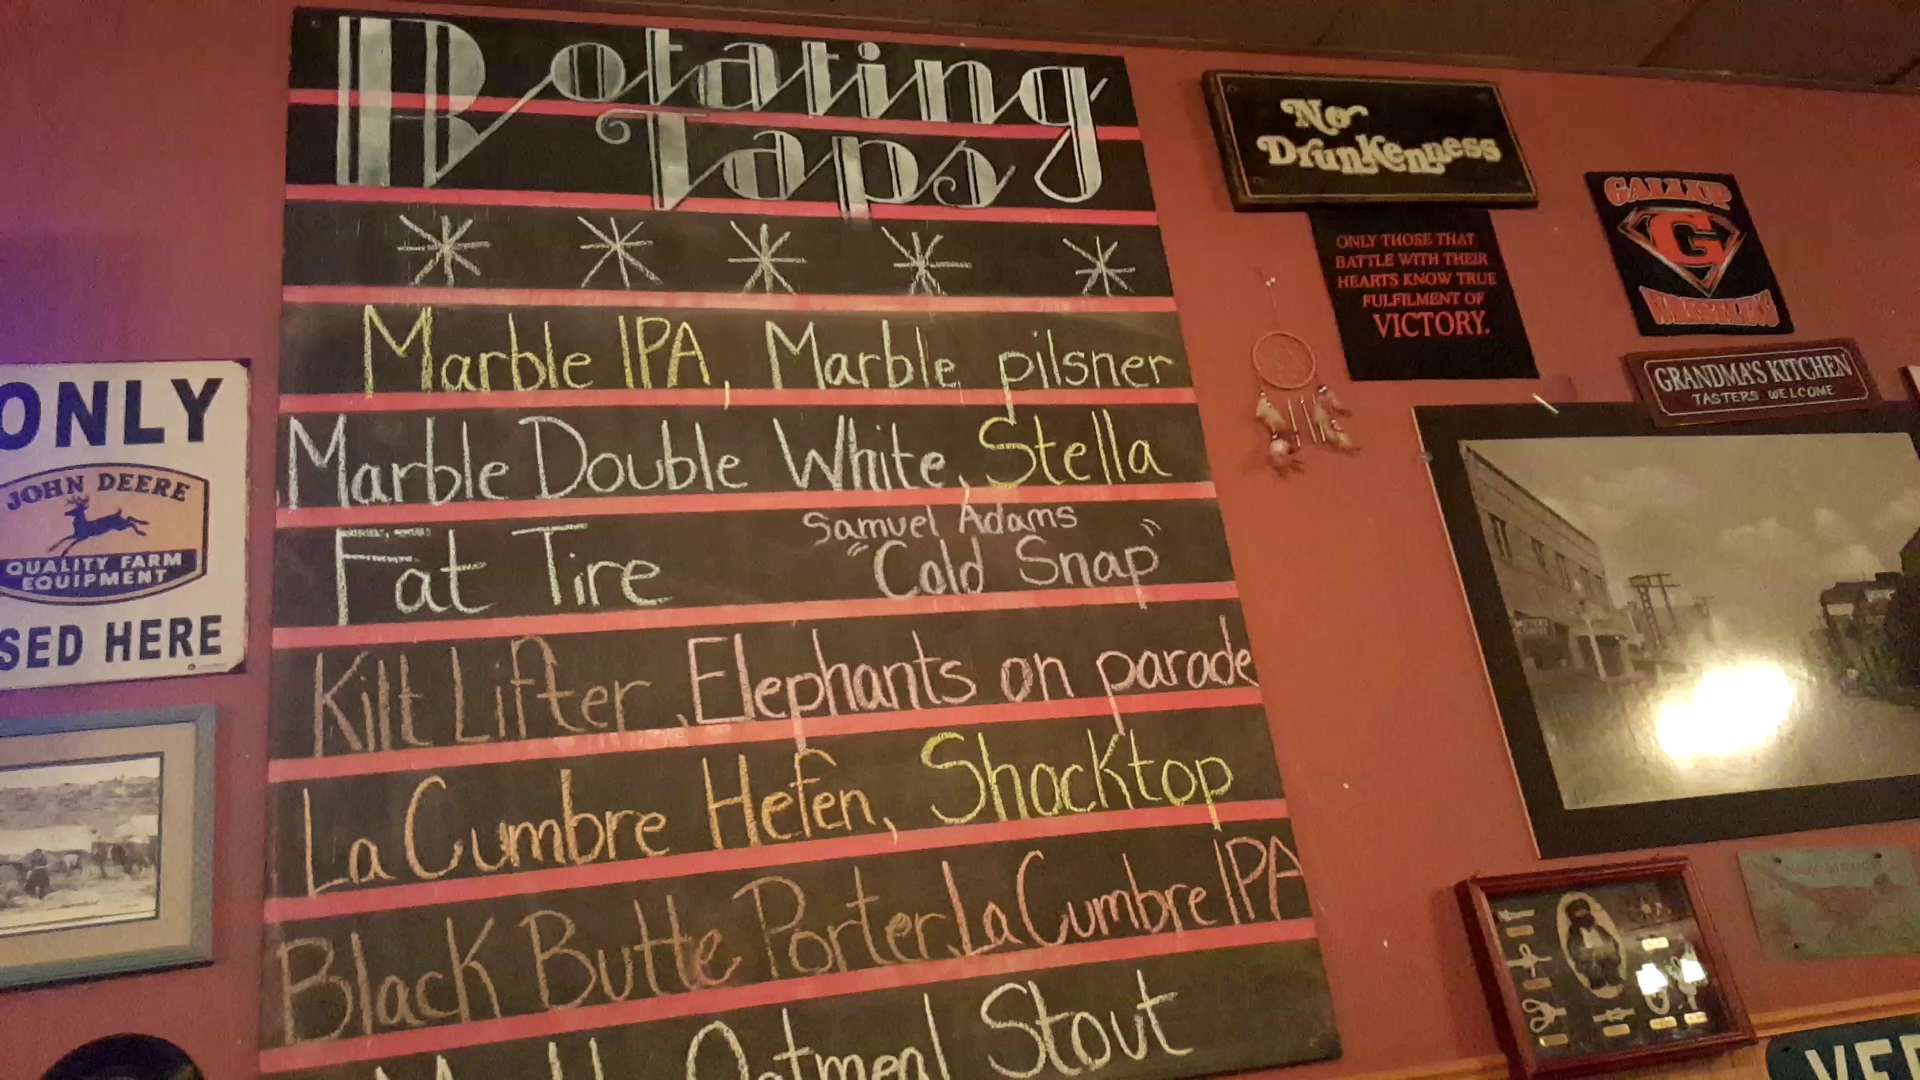 Rotating
Taps
Marble IPA, Marble pilsner
Marble Double White, Stella
Fat Tire
Samuel Adams
"Cold Snap"
Kilt Lifter, Elephants on parade
La Cumbre Hefen, Shocktop
Black Butte Porter, La Cumbre IPA
Oatmeal Stout
No
Drunkenness
ONLY THOSE THAT
BATTLE WITH THEIR
HEARTS KNOW TRUE
FULFILMENT OF
VICTORY.
GALLUP
G
WRESTLING
GRANDMA'S KITCHEN
TASTERS WELCOME
ONLY
JOHN DEERE
QUALITY FARM
EQUIPMENT
SED HERE